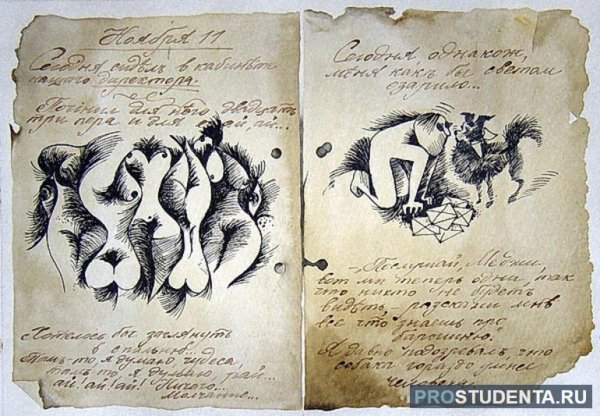 Ноября 11
Сегодня сидѣлъ в кабинѣтѣ
нашего директора.
Починил для него двадцать
три пера и для ея ай, ай...
Хотелось бы заглянуть
в спальню...
Тамъ-то я думаю, чудеса,
тамъ-то, я думаю, рай...
ай! ай! ай! Ничего...
Молчание...
Сегодня однакож,
меня какъ бы светом
озарило...
- Послушай, Меджи,
вот мы теперь одни, так
что никто не будѣтъ
видѣть, расскажи мнѣ
все что знаешь про
барышню.
Я давно подозревалъ, что
собака гораздо умнее
человека.
PROSTUDENTA.RU